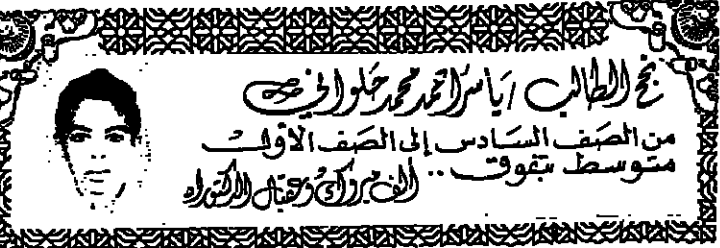 نجح الطالب / ياسر أحمد محمد حلواني
من الصف السادس إلى الصف الأول
متوسط بتفوق .. ألف مبروك وعقبال الدكتوراه